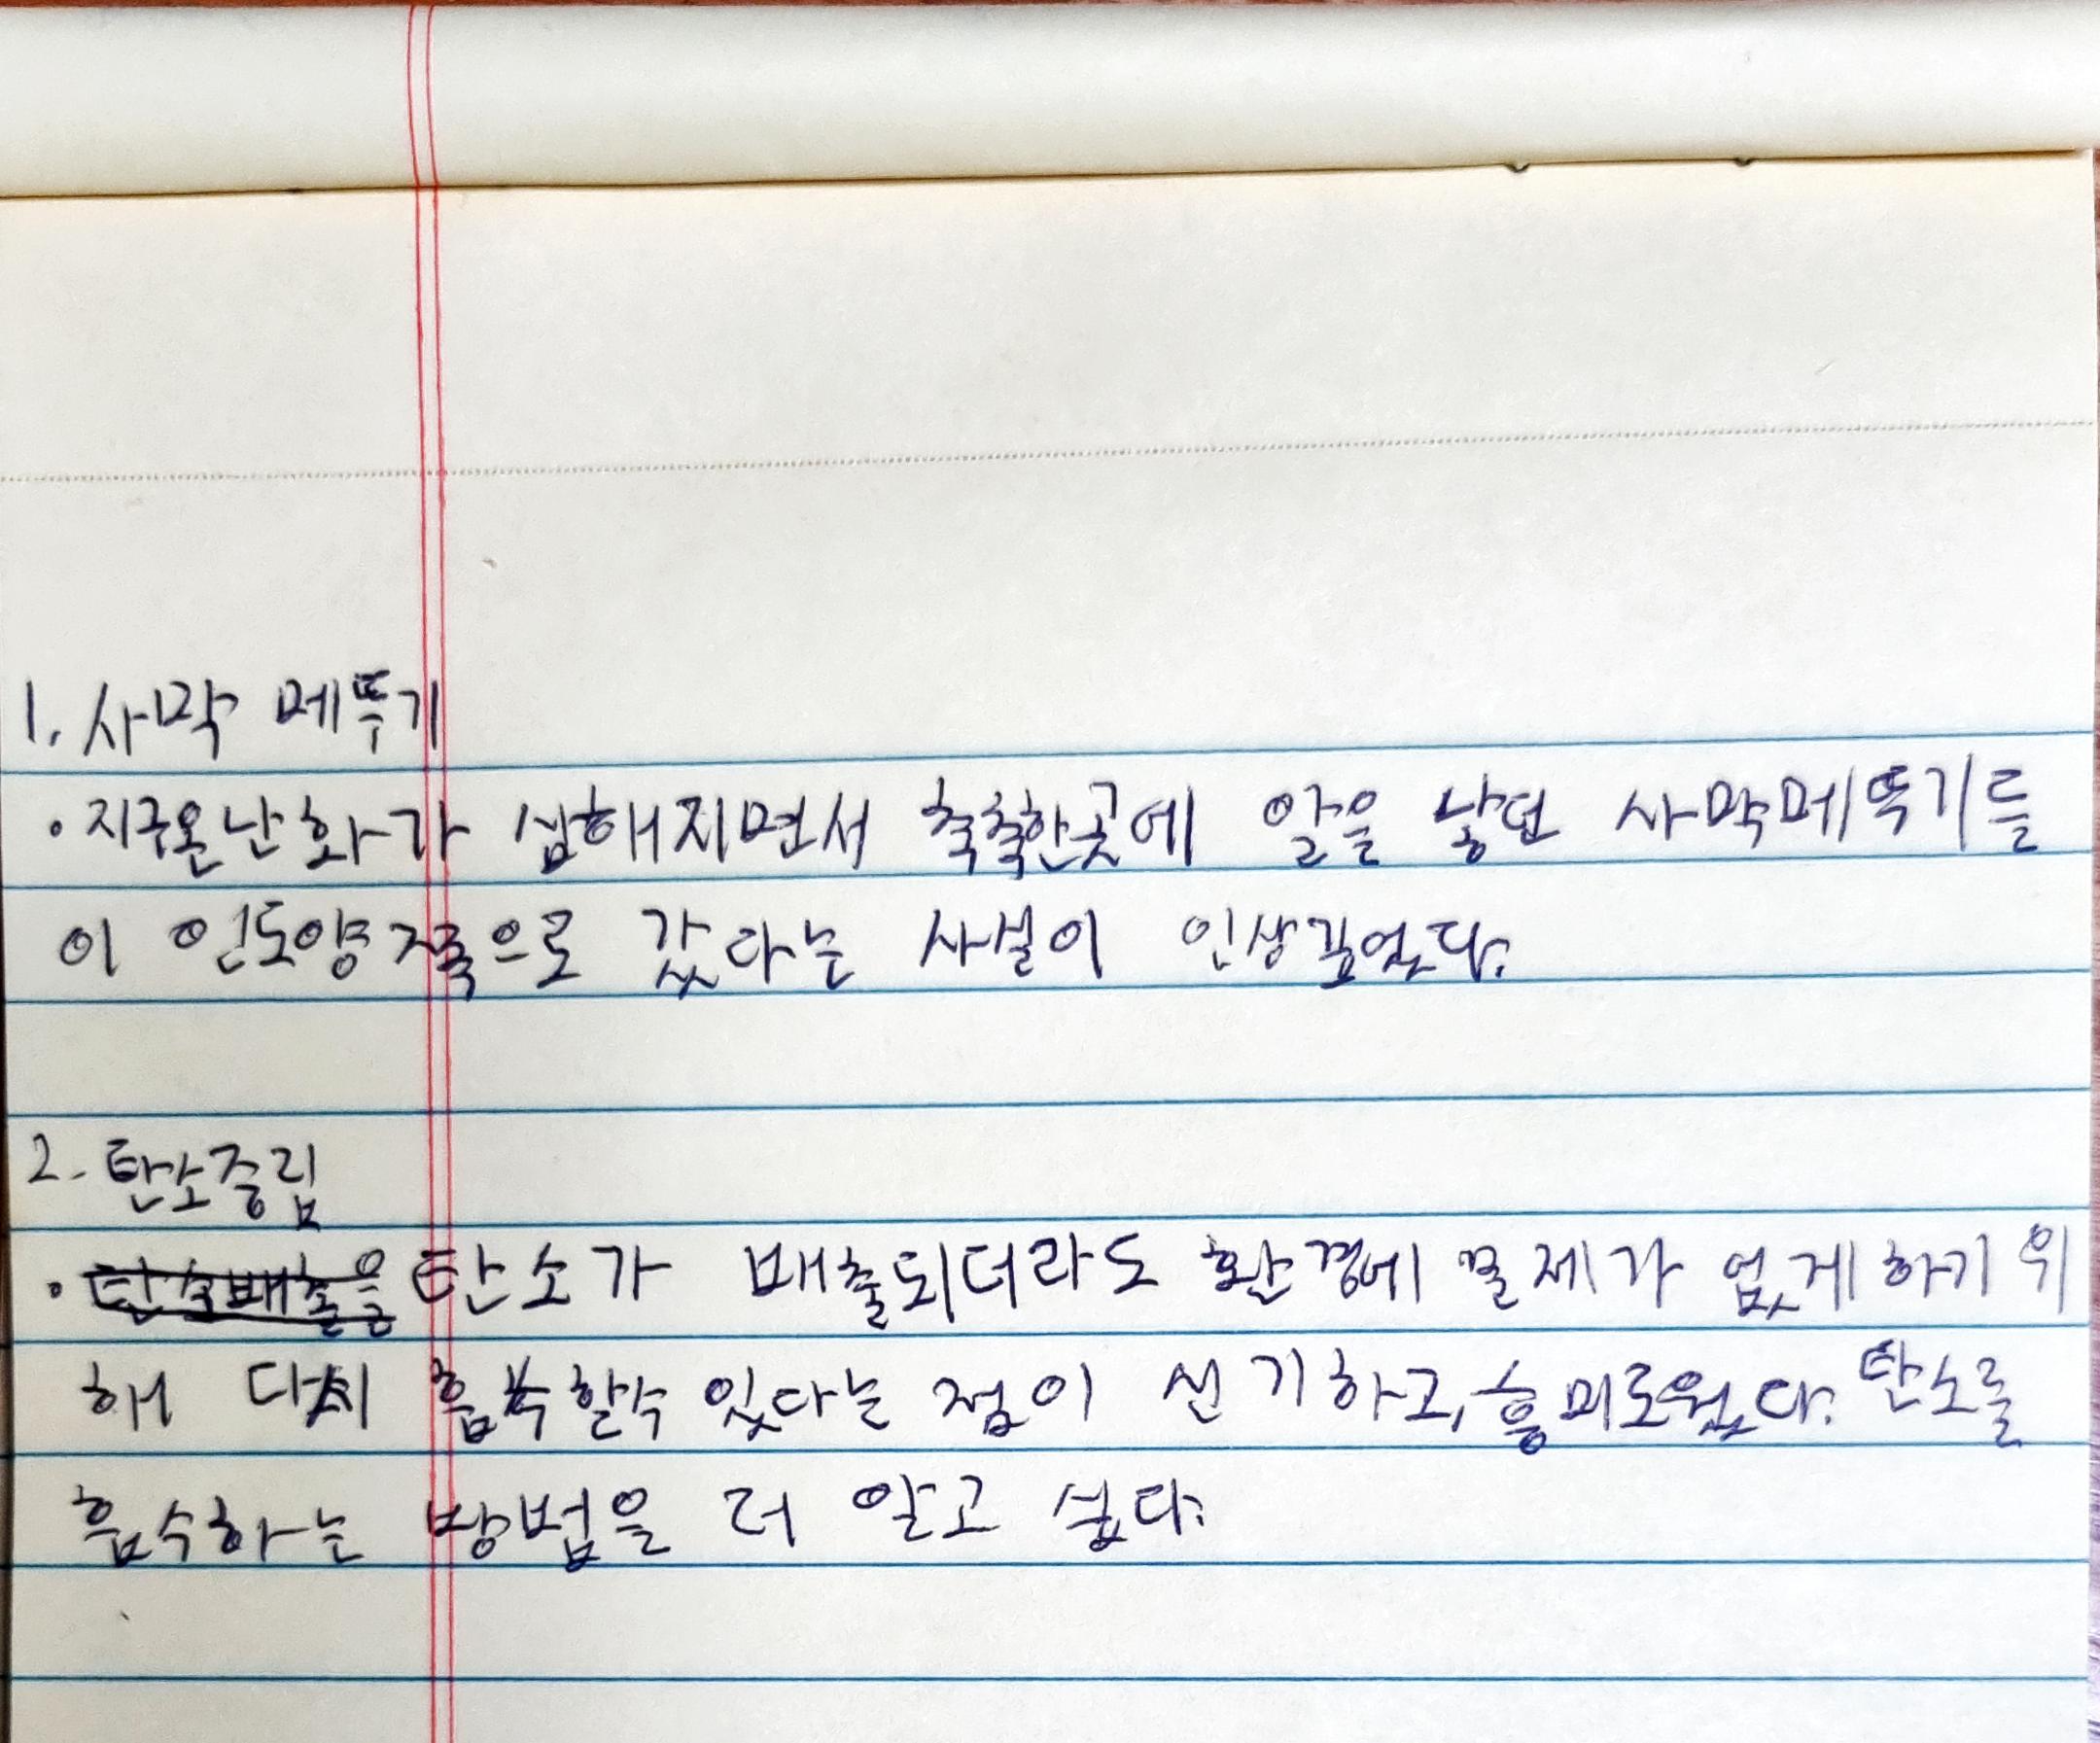 1. 사막 메뚜기
· 지구온난화가 심해지면서 축축한곳에 알을 낳던 사막메뚝기들
이 인도양쪽으로 갔다는 사실이 인상깊었다.
2. 탄소중립
· 탄소배출을 탄소가 배출되더라도 환경에 문제가 없게하기 위
해 다시 흡수할수 있다는 점이 신기하고, 흥미로웠다. 탄소를
흡수하는 방법을 더 알고 싶다.